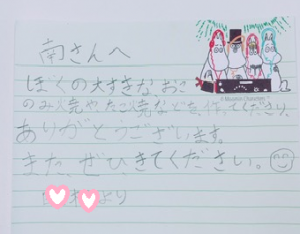 南さんへ
ぼくの大すきなおこ
© Moomin Characters
のみ焼やたこ焼などを、作ってくださり、
ありがとうございます。
また、ぜひきてください。
より